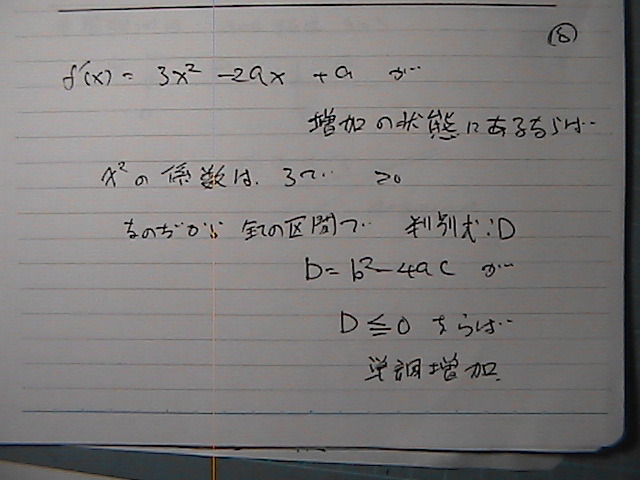 ⑧
f'(x) = 3x² - 2ax + a が
増加の状態にあるならば
x²の係数は、3で >0
なのだから 全ての区間で 判別式:D
D = b² - 4ac が
D ≦ 0 ならば
単調増加.